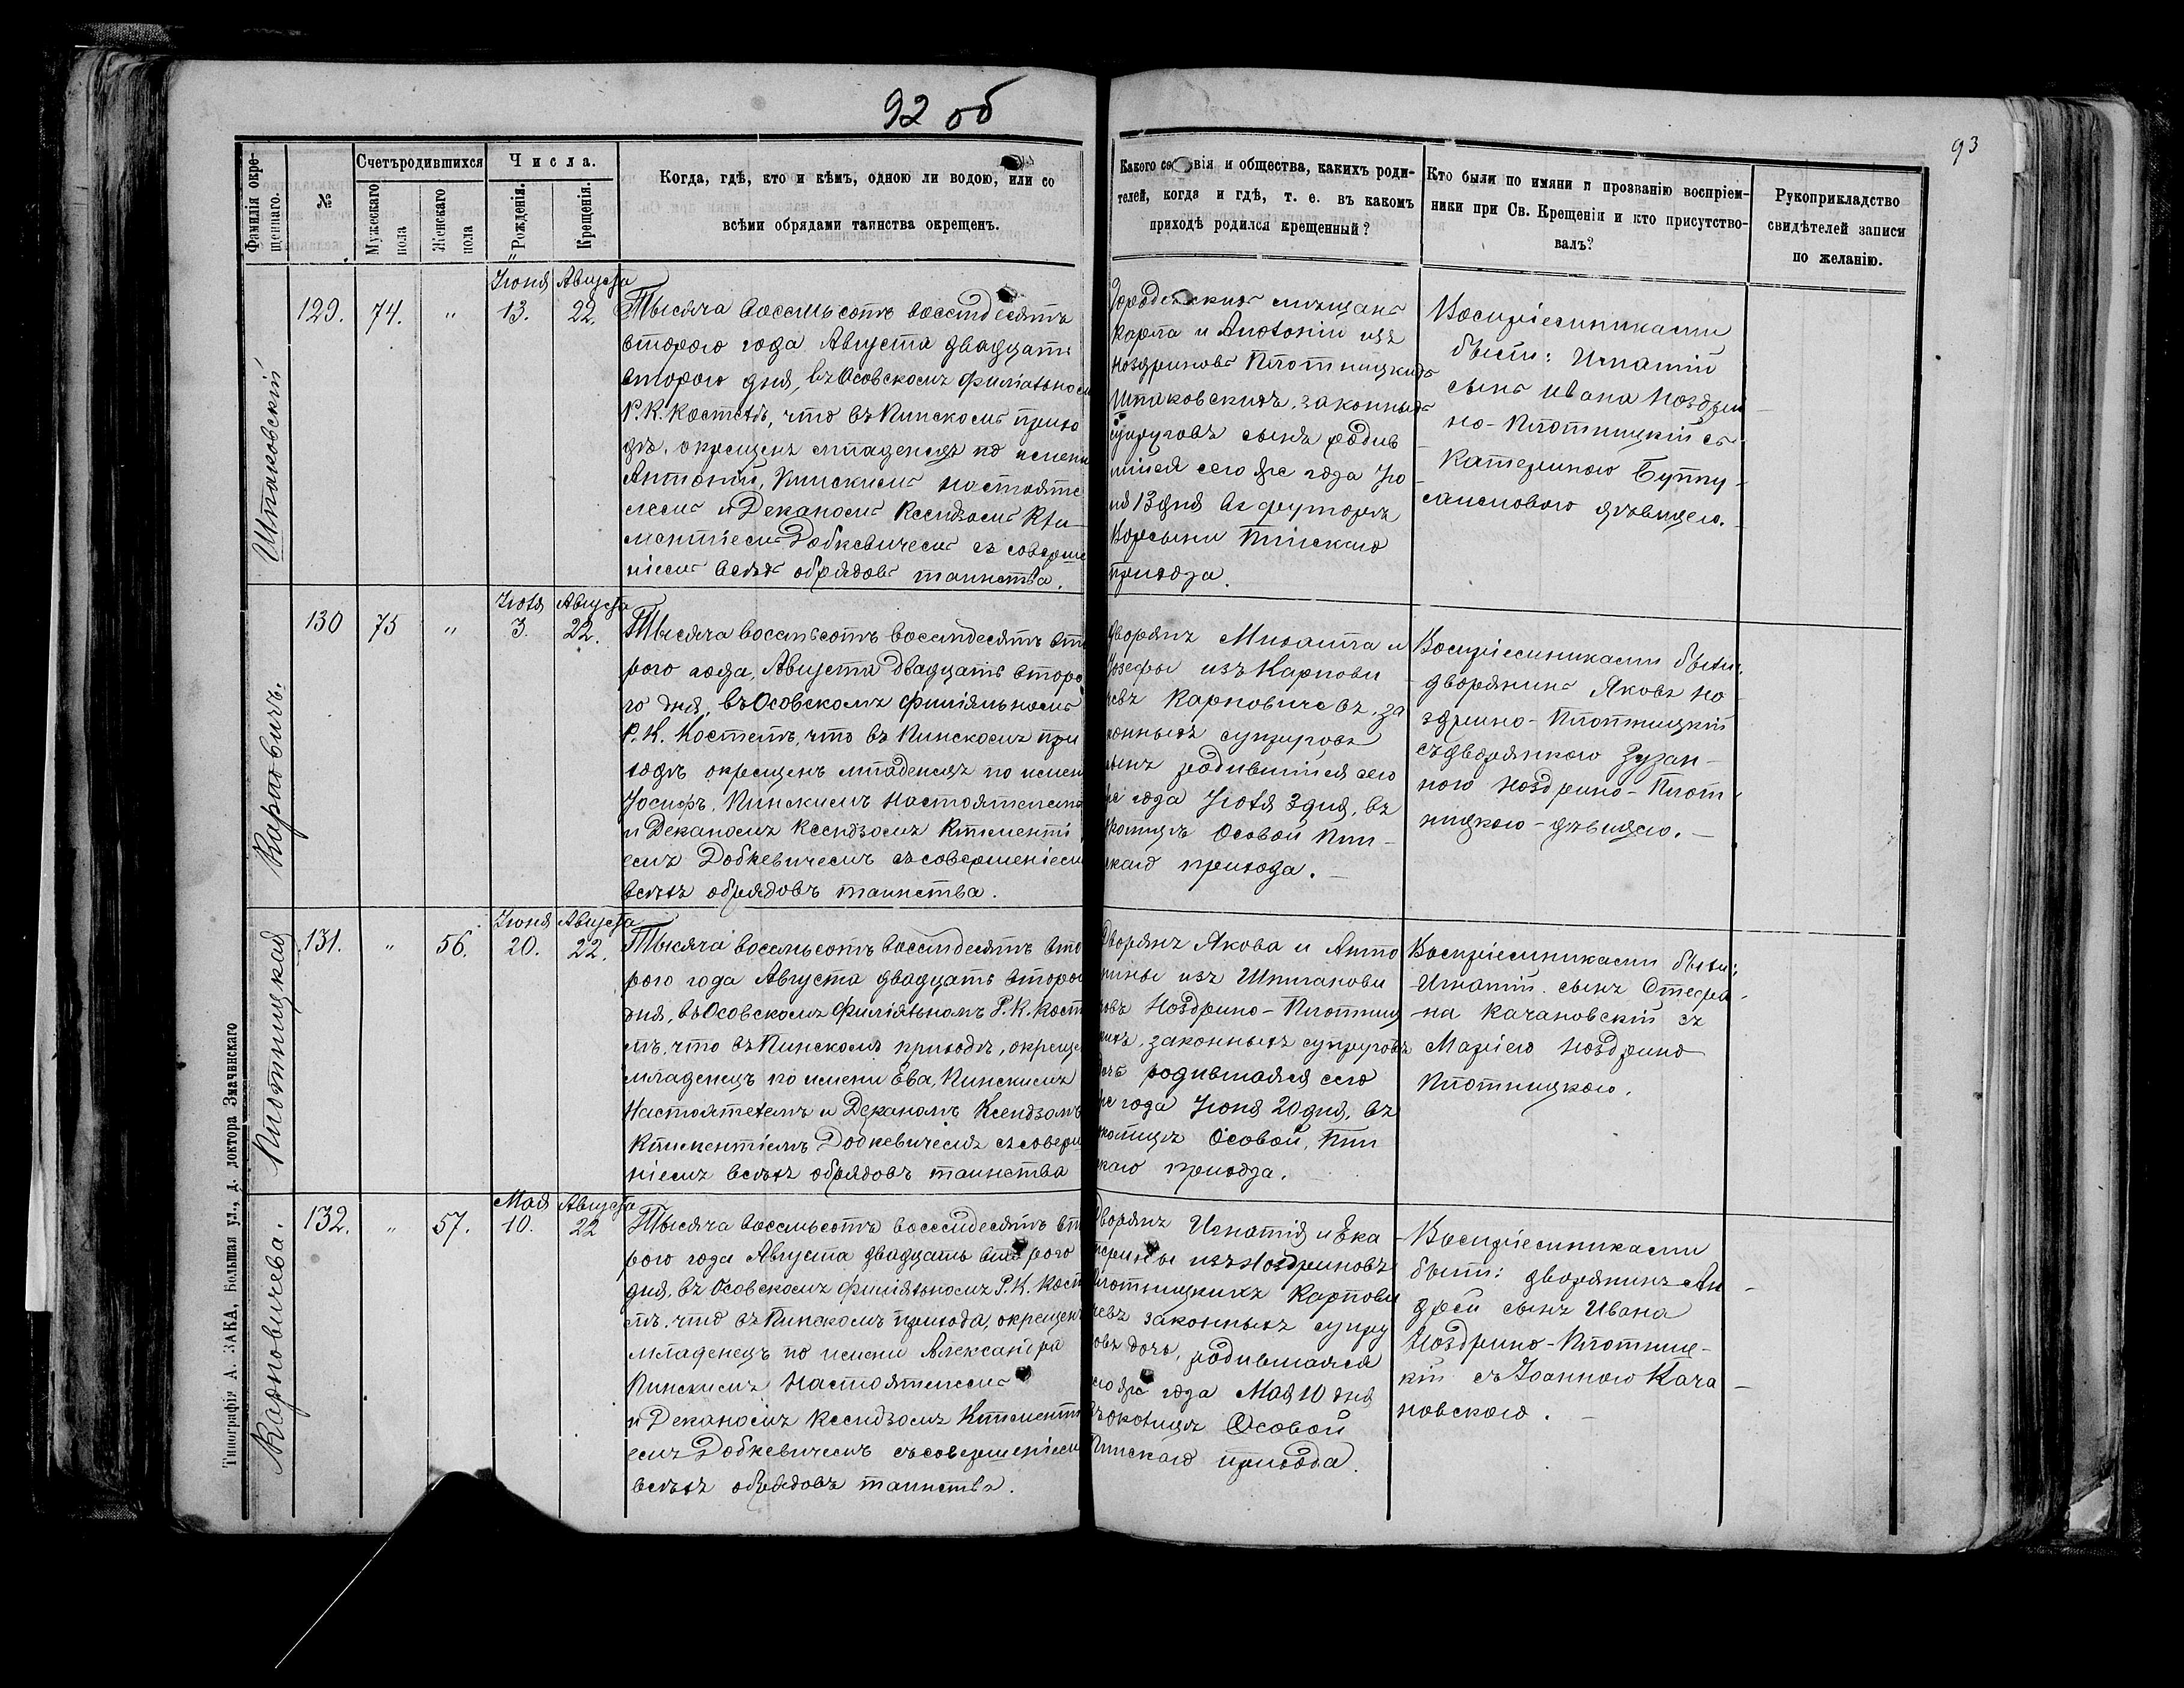 92 об
93
Фамилія окре-
щеннаго.
№
Счетъ родившихся
Мужескаго
пола
Женскаго
пола
Числа.
Рожденія.
Крещенія.
Когда, гдѣ, кто и кѣмъ, одною ли водою, или со
всѣми обрядами таинства окрещенъ.
Какого сословія и общества, какихъ роди-
телей, когда и гдѣ, т. е. въ какомъ
приходѣ родился крещенный?
Кто были по имяни и прозванію воспріем-
ники при Св. Крещеніи и кто присутство-
валъ?
Рукоприкладство
свидѣтелей записи
по желанію.
Шпаковскій
129. 74. „
Іюня Августа
13. 22.
Тысяча восемьсотъ восемдесятъ
второго года Августа двадцать
второго дня, въ Осовскомъ филіальномъ
Р. К. Костелѣ, что въ Пинскомъ прихо
дѣ, окрещенъ младенецъ по имени
Антоній, Пинскимъ Настояте
лемъ и Деканомъ Ксендзомъ Кли
ментіемъ Добкевичемъ съ соверше
ніемъ всѣхъ обрядовъ таинства.
мѣщанъ
Карла и Антоніи изъ
Ноздриновъ Плотницкихъ
Шпаковскихъ, законныхъ
супруговъ сынъ родив
шійся сего же года Ію
ня 13 дня въ футорѣ
Пинскаго
прихода.
Воспріемниками
были: Игнатій
сынъ Ивана Ноздри
но-Плотницкій съ
Катериною
дѣвицею.
Карповичъ.
130 75 „
Іюля Августа
3. 22.
Тысяча восемьсотъ восемдесятъ вто
рого года, Августа двадцать второ
го дня, въ Осовскомъ филіяльномъ
Р. К. Костелѣ, что въ Пинскомъ при
ходѣ окрещенъ младенецъ по имени
Іосифъ, Пинскимъ Настоятелемъ
и Деканомъ Ксендзомъ Клименті
емъ Добкевичемъ съ совершеніемъ
всѣхъ обрядовъ таинства.
Дворянъ Михаила и
Іозефы изъ Карпови
чевъ Карповичевъ, за
конныхъ супруговъ
сынъ родившійся сего
же года Іюля 3 дня, въ
околицѣ Осовой Пин-
скаго прихода.
Воспріемниками были:
дворянинъ Яковъ Но
здрино-Плотницкій
съ дворянкою Зузан-
ною Ноздрино-Плот
ницкою-дѣвицею.
Плотницкая
131. „ 56.
Іюня Августа
20. 22.
Тысяча восемьсотъ восемдесятъ вто
рого года Августа двадцать второго
дня, въ Осовскомъ филіяльномъ Р. К. Косте
лѣ, что въ Пинскомъ приходѣ, окрещенъ
младенецъ по имени Ева, Пинскимъ
Настоятелемъ и Деканомъ Ксендзомъ
Климентіемъ Добкевичемъ съ соверше
ніемъ всѣхъ обрядовъ таинства
Дворянъ Якова и Анто
нины изъ Шпитакови
човъ Ноздрино-Плотниц
кихъ, законныхъ супруговъ
дочь родившаяся сего
же года Іюня 20 дня, въ
околицѣ Осовой, Пин
скаго прихода.
Воспріемниками были:
Игнатій сынъ Стефа-
на Качановскій съ
Маріею Ноздрино
Плотницкою.
Карповичева.
132. „ 57.
Мая Августа
10. 22
Тысяча восемьсотъ восемдесятъ вто
рого года Августа двадцать второго
дня, въ Осовскомъ филіяльномъ Р. К. Косте
лѣ, что въ Пинскомъ прихода, окрещенъ
младенецъ по имени Александра
Пинскимъ Настоятелемъ
и Деканомъ Ксендзомъ Клименті
емъ Добкевичемъ съ совершеніемъ
всѣхъ обрядовъ таинства.
Дворянъ Игнатія и Ека
терины изъ Ноздриновъ
Плотницкихъ Карпови
чевъ законныхъ супру
говъ дочь, родившаяся
сего же года Мая 10 дня
въ околицѣ Осовой
Пинскаго прихода.
Воспріемниками
были: дворянинъ Ан
дрей сынъ Ивана
Ноздрино-Плотниц-
кій съ Іоанною Кача
новскою.
Типографія А. ЗАКА, Большая ул., д. доктора Значынскаго